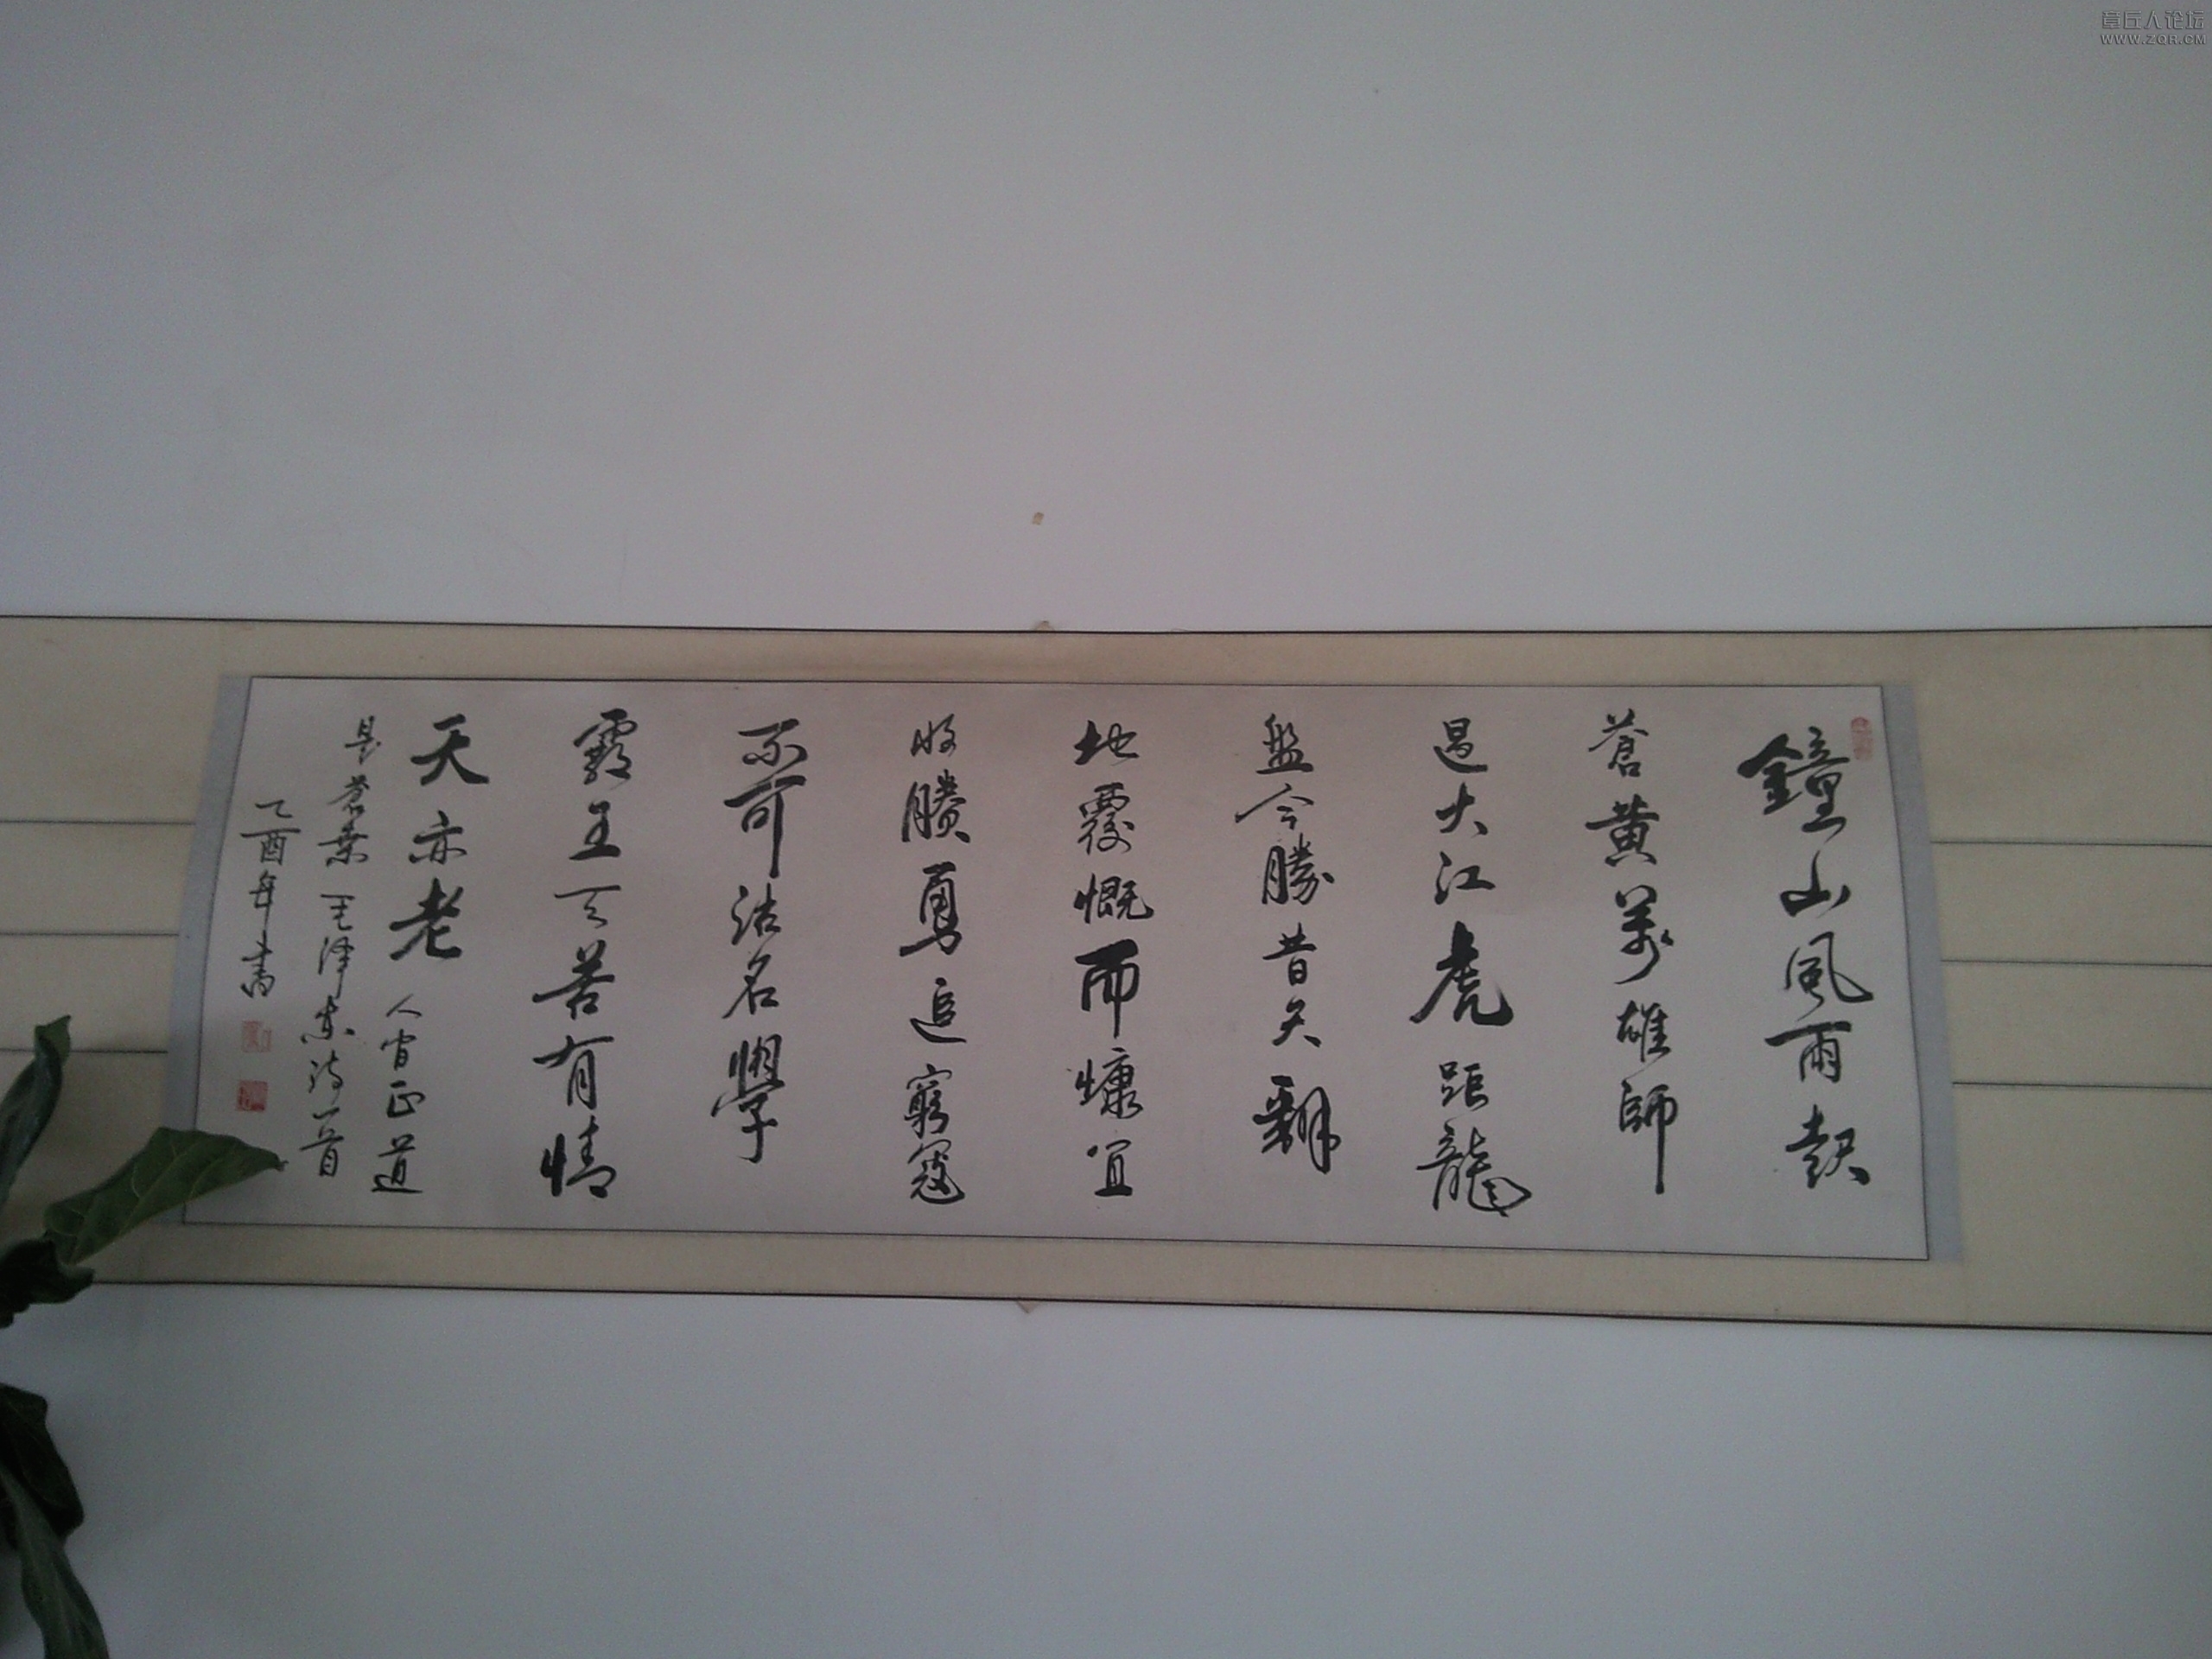 鐘山風雨起
蒼黄萬雄師
過大江虎踞龍
盤今勝昔天翻
地覆慨而慷宜
將賸勇追窮寇
不可沽名學
霸王天若有情
天亦老人间正道
是蒼桑 毛泽东诗一首
乙酉年书
章丘人论坛
WWW.ZQR.CM